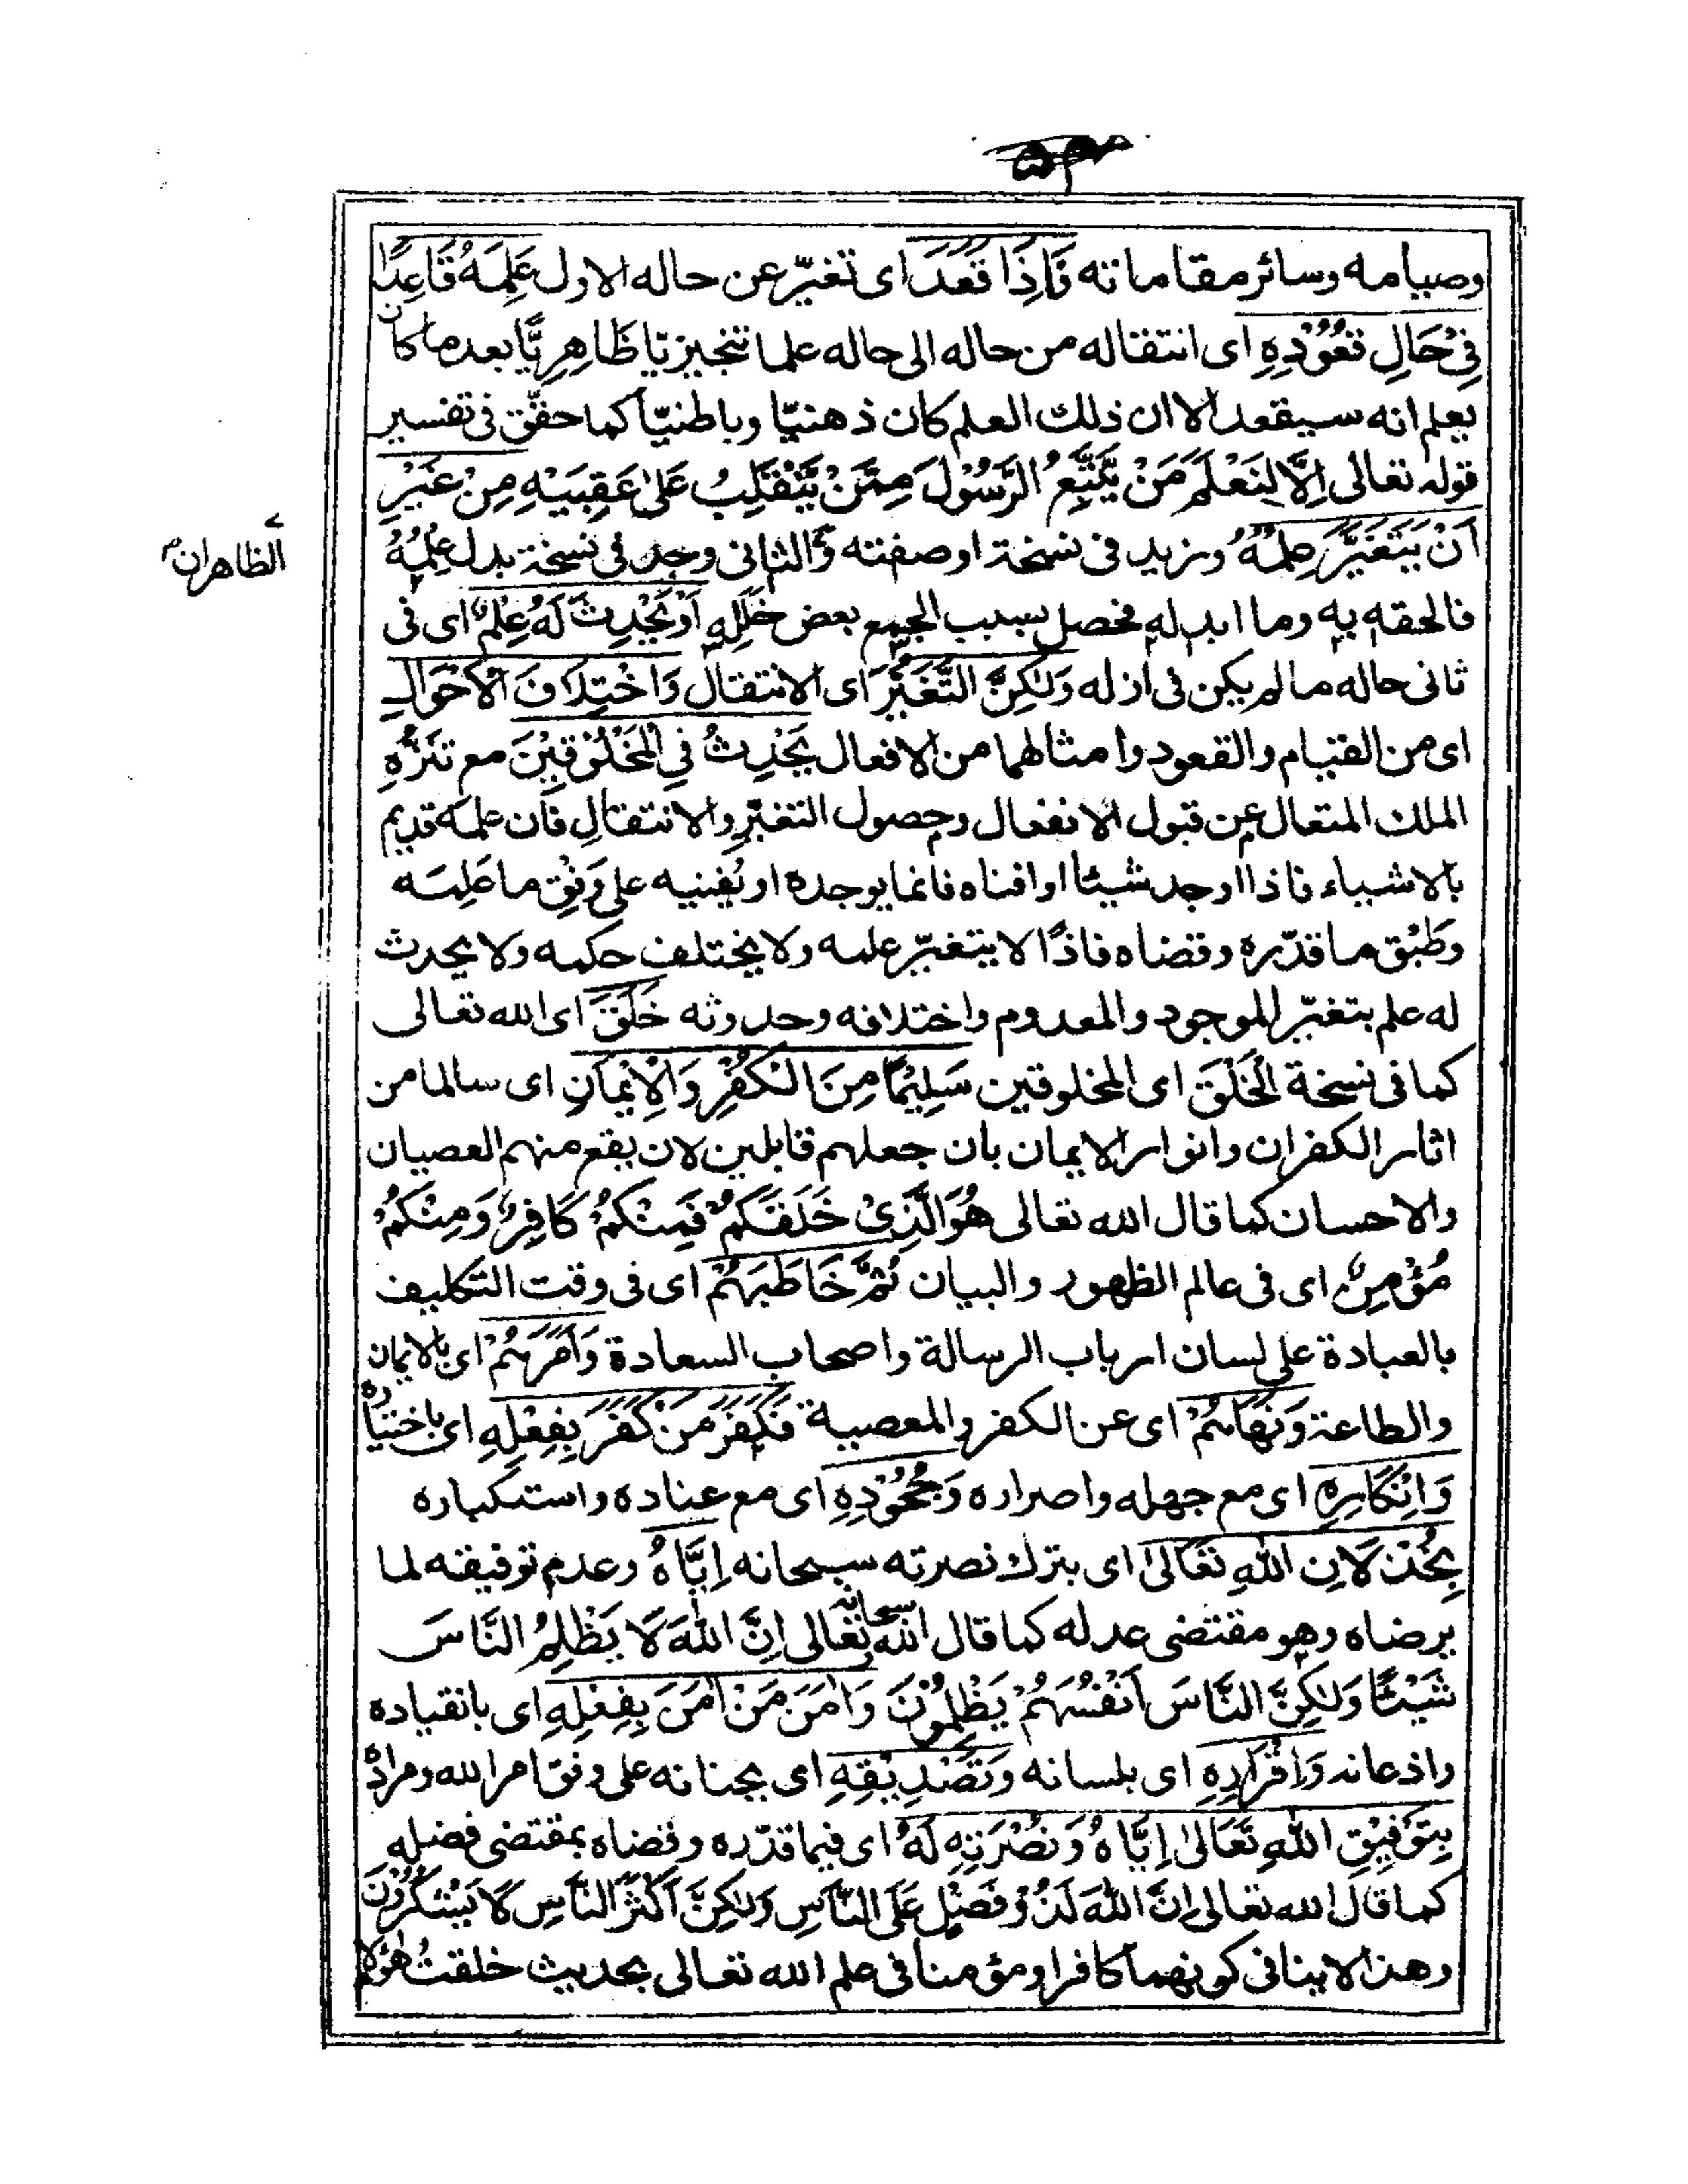 وصيامه وسائر مقاماته فَإِذَا قَعَدَ اى تغيّر عن حاله الاول عَلِمَهُ قَاعِدًا
فِيْ حَالِ قُعُوْدِهِ اى انتقاله من حاله الى حاله علما تنجيزيّا ظَاهِرِيًّا بعد ما كان
يعلم انه سيقعد الا ان ذلك العلم كان ذهنيّا وباطنيّا كما حقّق فى تفسير
قوله تعالى اِلَّا لِنَعْلَمَ مَنْ يَّتَّبِعُ الرَّسُوْلَ مِمَّنْ يَّنْقَلِبُ عَلىٰ عَقِبَيْهِ مِنْ غَيْرِ
اَنْ يَتَغَيَّرَ عِلْمُهُ وزيد فى نسخة او صفته والثانى وجد فى نسخة بدل عِلْمُهُ
الظاهران
فالحقه به وما ابدله فحصل بسبب الجمع بعض خَلَلِهِ اَوْ يَحْدِثَ لَهُ عِلْمٌ اى فى
ثانى حاله ما لم يكن فى ازله وَلٰكِنَّ التَّغَيُّرَ اى الانتقال وَاخْتِلَافَ الْاَحْوَالِ
اى من القيام والقعود وامثالهما من الافعال يَحْدِثُ فِي الْمَخْلُوْقِيْنَ مع تَنَزُّهِ
الملك المتعال عن قبول الانفعال وحصول التغيّر والانتقال فان علمه قديم
بالاشياء فاذا اوجد شيئا او افناه فانما يوجده او يُفنيه على وَفْقِ ما عَلِمَه
وطَبْق ما قدّره وقضاه فاذًا لا يتغيّر علمه ولا يختلف حكمه ولا يحدث
له علم بتغيّر الموجود والمعدوم واختلافه وحدوثه خَلَقَ اى الله تعالى
كما فى نسخة الْخَلْقَ اى المخلوقين سَلِيْمًا مِنَ الْكُفْرِ وَالْاِيْمَانِ اى سالما من
اثار الكفران وانوار الايمان بان جعلهم قابلين لان يقع منهم العصيان
والاحسان كما قال الله تعالى هُوَ الَّذِيْ خَلَقَكُمْ فَمِنْكُمْ كَافِرٌ وَمِنْكُمْ
مُؤْمِنٌ اى فى عالم الظهور والبيان ثُمَّ خَاطَبَهُمْ اى فى وقت التكليف
بالعبادة على لسان ارباب الرسالة واصحاب السعادة وَاَمَرَهُمْ اى بالايمان
والطاعة وَنَهَاهُمْ اى عن الكفر والمعصية فَكَفَرَ مَنْ كَفَرَ بِفِعْلِهِ اى باختياره
وَاِنْكَارِهِ اى مع جهله واصراره وَجُحُوْدِهِ اى مع عناده واستكباره
بِخُذْلَانِ اللّٰهِ تَعَالىٰ اى بترك نصرته سبحانه اِيَّاهُ وعدم توفيقه لما
يرضاه وهو مقتضى عدله كما قال الله سبحانه تعالى اِنَّ اللّٰهَ لَا يَظْلِمُ النَّاسَ
شَيْئًا وَلٰكِنَّ النَّاسَ اَنْفُسَهُمْ يَظْلِمُوْنَ وَاٰمَنَ مَنْ اٰمَنَ بِفِعْلِهِ اى بانقياده
واذعانه وَاِقْرَارِهِ اى بلسانه وَتَصْدِيْقِهِ اى بجنانه على وفق امر الله ومراده
بِتَوْفِيْقِ اللّٰهِ تَعَالىٰ اِيَّاهُ وَنُصْرَتِهِ لَهُ اى فيما قدّره وقضاه بمقتضى فضله
كما قال الله تعالى اِنَّ اللّٰهَ لَذُوْ فَضْلٍ عَلَى النَّاسِ وَلٰكِنَّ اَكْثَرَ النَّاسِ لَا يَشْكُرُوْنَ
وهذا لا ينافى كونهما كافرا ومؤمنا فى علم الله تعالى بحديث خلقت هؤلاء